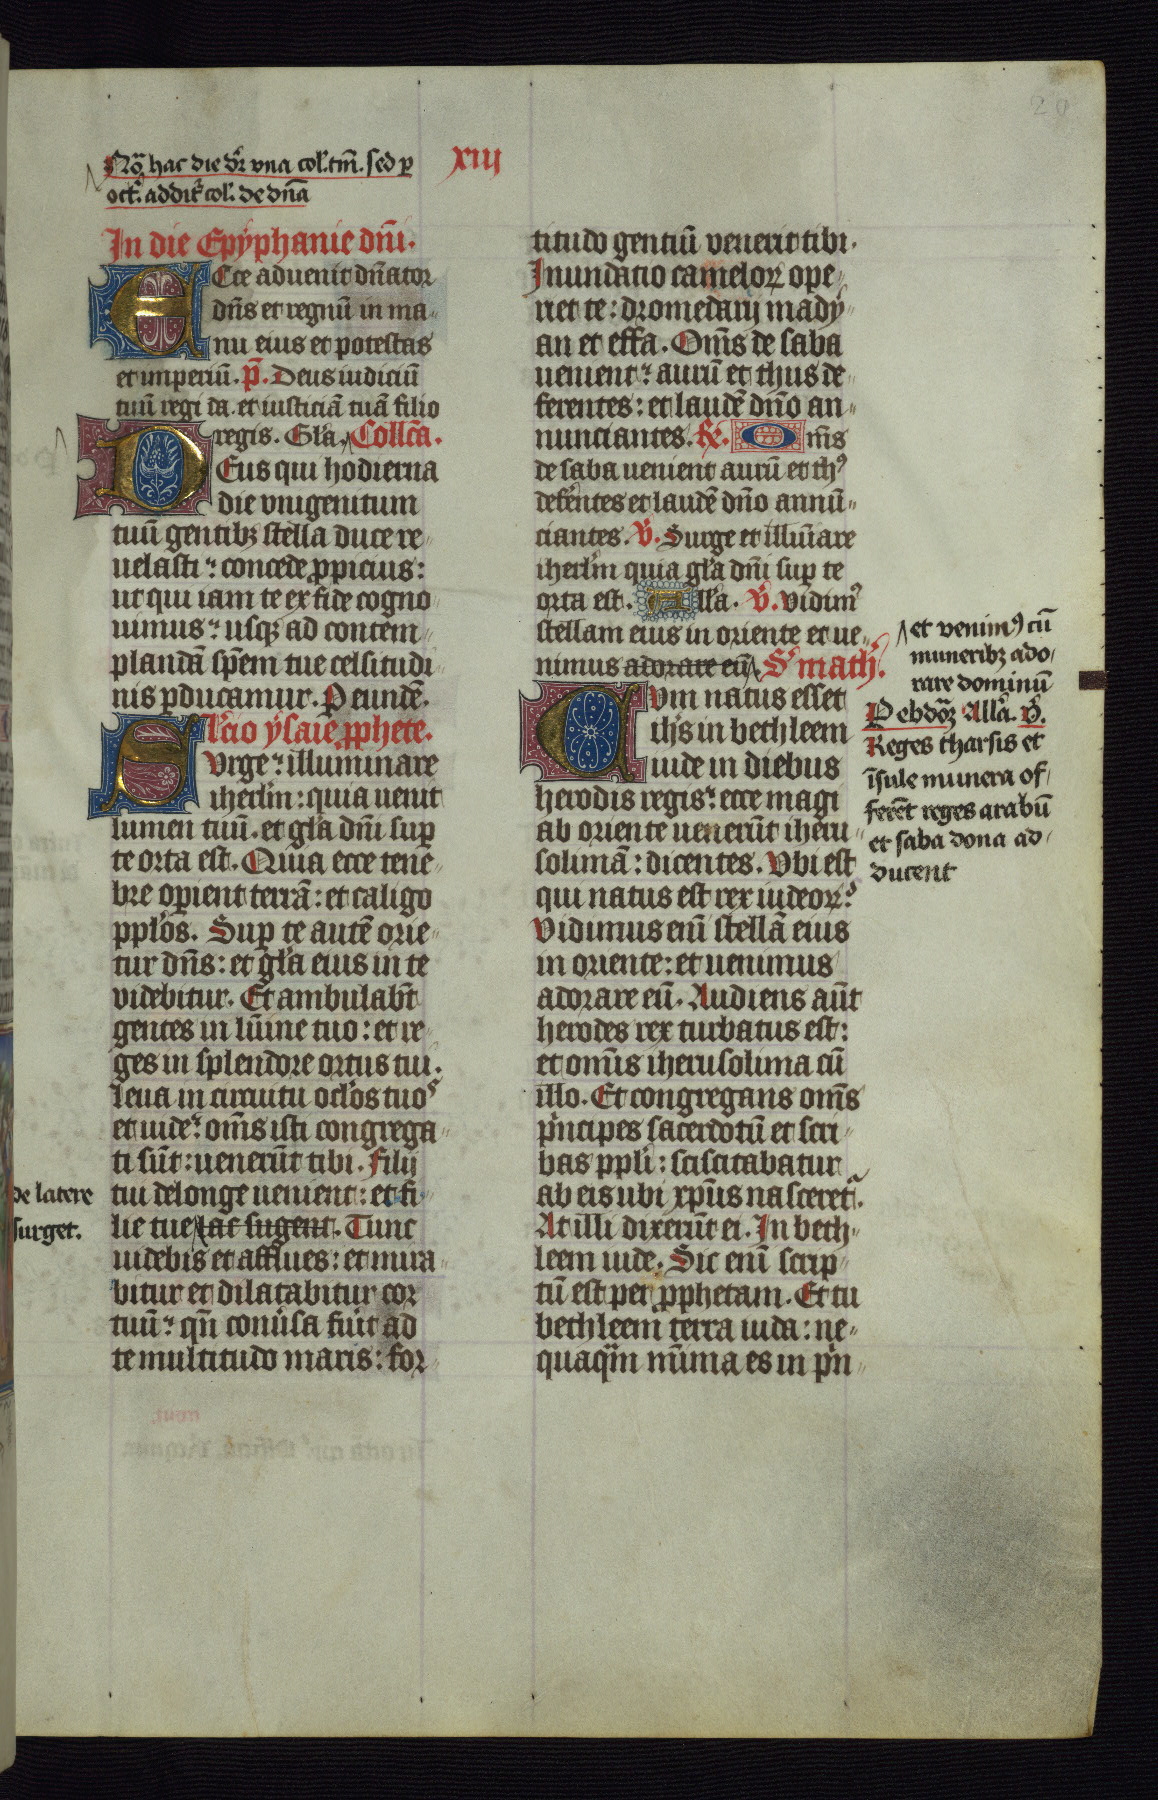 20
Nō hac die dr̄ vna col̄. tm̄. sed p
oct̄. addit̄ col̄. de dn̄a
xiij
In die Epyphanie dn̄i.
Ecce aduenit dn̄ator
dn̄s et regnū in ma-
nu eius et potestas
et imperiū. p̄. Deus iudiciū
tuū regi da. et iusticiā tuā filio
regis. Gl̄a. Collc̄a.
Deus qui hodierna
die vnigenitum
tuū gentibꝫ stella duce re-
uelasti: concede ꝓpicius:
ut qui iam te ex fide cogno-
uimus: usqꝫ ad contem-
plandā spēm tue celsitudi-
nis ꝑducamur. P eundē.
Lc̄cio ysaie ꝓphete.
Surge: illuminare
iherl̄m: quia uenit
lumen tuū. et gl̄a dn̄i suꝑ
te orta est. Quia ecce tene-
bre oꝑient terrā: et caligo
ppl̄os. Suꝑ te autē orie-
tur dn̄s: et gl̄a eius in te
videbitur. Et ambulab̄t
gentes in lūīne tuo: et re-
ges in splendore ortus tui.
Leua in circuitu ocl̄os tuoˢ
et uide: om̄s isti congrega-
ti sūt: uenerūt tibi. Filij
tui delonge uenient: et fi-
lie tue lac sugent. Tunc
de latere
surget.
uidebis et afflues: et mira-
bitur et dilatabitur cor
tuū: qn̄ conūsa fūit ad
te multitudo maris: for-
titudo gentiū venerit tibi.
Inundatio cameloꝝ ope-
riet te: dromedarij mady-
an et effa. Om̄s de saba
uenient: aurū et thus de-
ferentes: et laudē dn̄o an-
nunciantes. ℟. Om̄s
de saba uenient aurū et thꝰ
defēntes et laudē dn̄o annū-
ciantes. ℣. Surge et illuīare
iherl̄m quia gl̄a dn̄i suꝑ te
orta est. All̄a. ℣. Vidimꝰ
stellam eius in oriente et ue-
nimus adorare eū. Sᵐ math̄.
et venimꝰ cū
muneribꝫ ado-
rare dominū
P ebdoꝫ All̄a. ℣.
Reges tharsis et
īsule munera of-
ferēt reges arabū
et saba dona ad-
ducent
Cum natus esset
ih̄s in bethleem
iude in diebus
herodis regis: ecce magi
ab oriente uenerūt iheru-
solimā: dicentes. Vbi est
qui natus est rex iudeoꝝ?
Vidimus enī stellā eius
in oriente: et uenimus
adorare eū. Audiens aūt
herodes rex turbatus est:
et omīs iherusolima cū
illo. Et congregans om̄s
pⁱncipes sacerdotū et scri-
bas ppl̄i: sciscitabatur
ab eis ubi xp̄us nasceret̄.
At illi dixerūt ei. In beth-
leem iude. Sic enī scrip-
tū est per ꝓphetam. Et tu
bethleem terra iuda: ne-
quaqᵃm mīnima es in pⁱn-